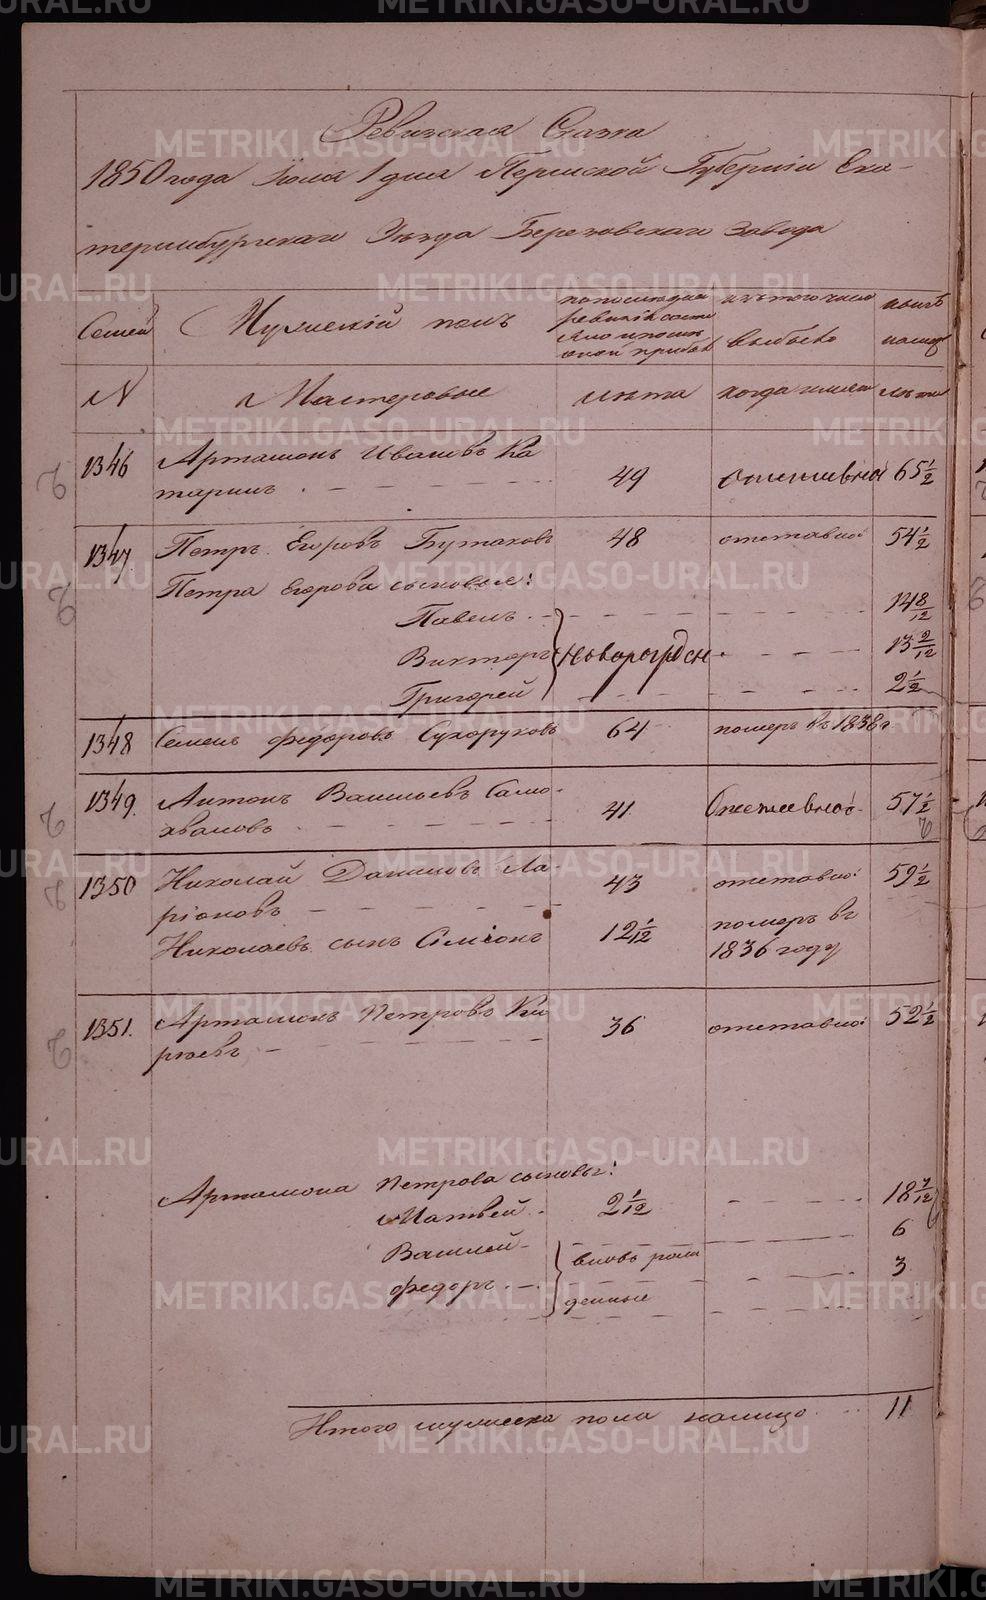 Ревизская Сказка
1850 года Июля 1 дня Пермской Губернiи Ека-
теринбургскаго Уѣзда Березовскаго Завода
Семей Мужескiй полъ по последней ревизiи состо яло и после оной прибыло изъ того числа выбыло нынѣ налицо
N Мастеровые лѣта когда именно лѣта
1346 Артамонъ Ивановъ Ка
таринъ . - - - - - 49 65 1/2
1347 Петръ Егоровъ Бутаковъ 48 отставной 54 1/2
Петра Егорова сыновья:
Павелъ 14 8/12
Викторъ } новорожден 13 2/12
Григорей 2 1/2
1348 Семенъ Федоровъ Сухоруковъ 64 померъ въ 1838 г
1349. Антонъ Васильевъ Само-
хваловъ 41. 57 1/2
1350 Николай Даниловъ Ла-
рiоновъ 43 отставной 59 1/2
Николаевъ сынъ Сiмiонъ 12 1/12 померъ въ
1836 году
1351. Артамонъ Петровъ Ки
рѣевъ 36 отставной 52 1/2
Артамона Петрова сыновья:
Матвей 2 1/12 18 7/12
Василей } вновь рож 6
Федоръ денные 3
Итого мужеска пола налицо 11
METRIKI.GASO-URAL.RU